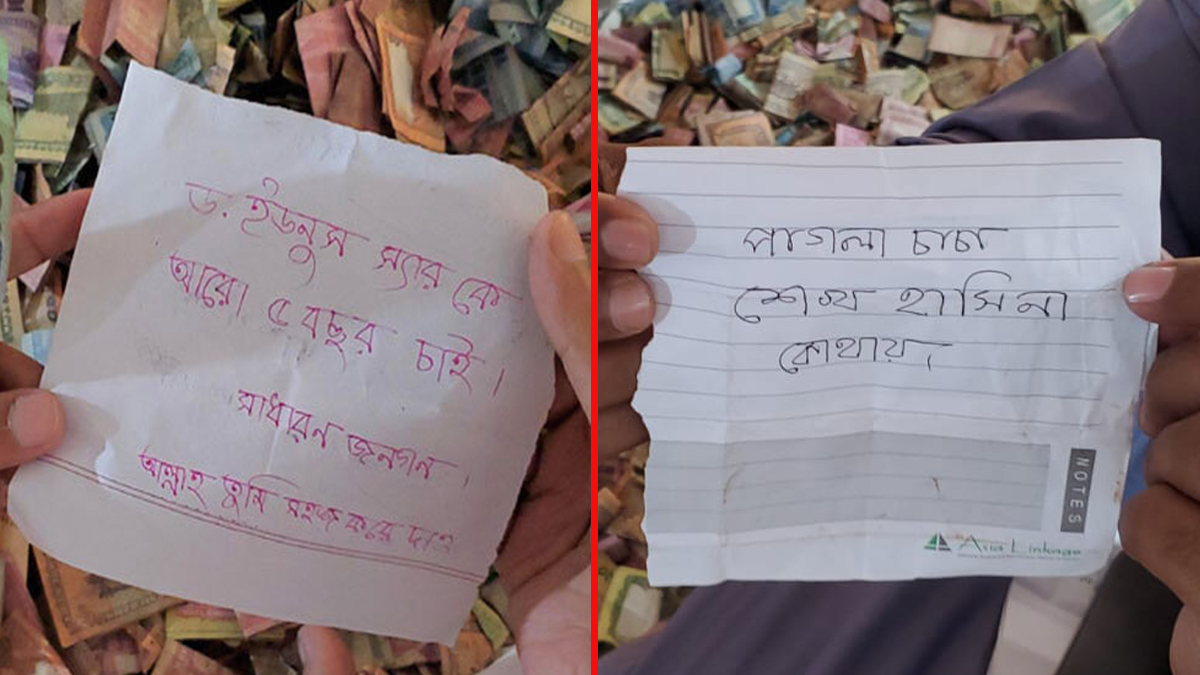 ড. ইউনুস স্যার কে
আরো ৫ বছর চাই।
সাধারণ জনগন।
আল্লাহ তুমি সহজ করে দাও
পাগলা চাচা
শেখ হাসিনা
কোথায়।
NOTES
Asia Linkage